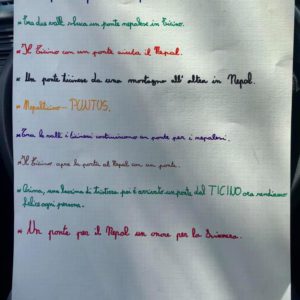 * Tra due valli sbuca un ponte nepalese in Ticino.
* Il Ticino con un ponte aiuta il Nepal.
* Un ponte ticinese da una montagna all' altra in Nepal.
* Nepalticino - PONTOS.
* Tra le valli i ticinesi costruiscono un ponte per i nepalesi.
* Il Ticino apre la porta al Nepal con un ponte.
* Prima, una lacrima di tristezza poi è arrivato un ponte dal TICINO ora rendiamo
felice ogni persona.
* Un ponte per il Nepal un onore per la Svizzera.